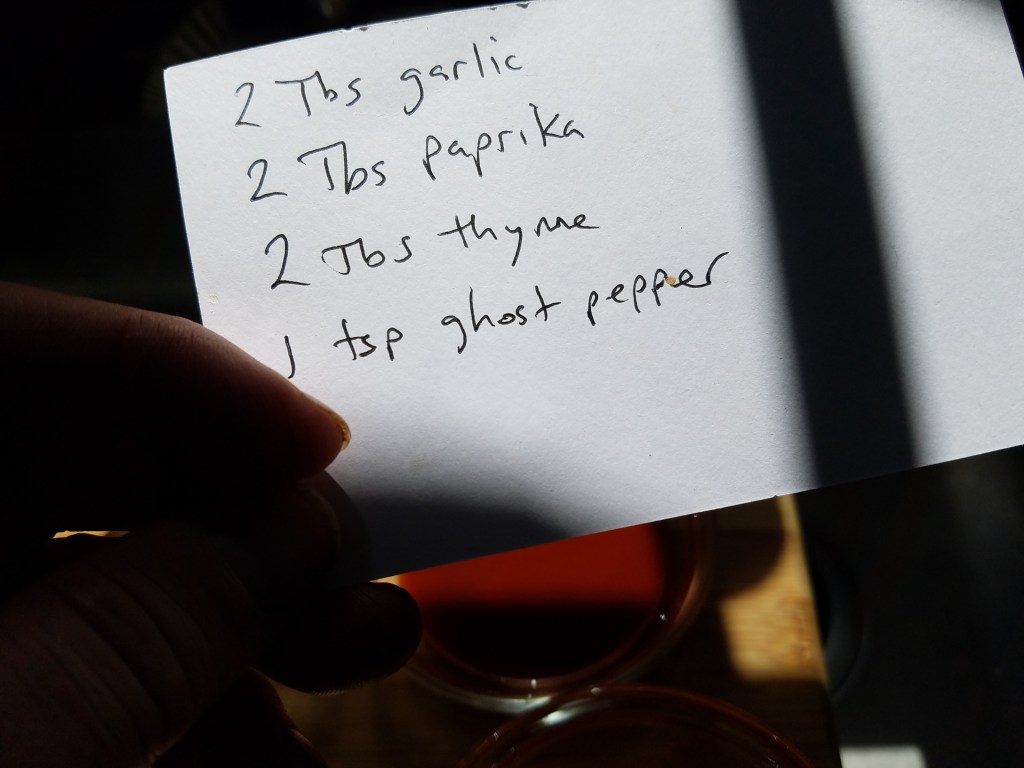 2 Tbs garlic
2 Tbs paprika
2 Tbs thyme
1 tsp ghost pepper